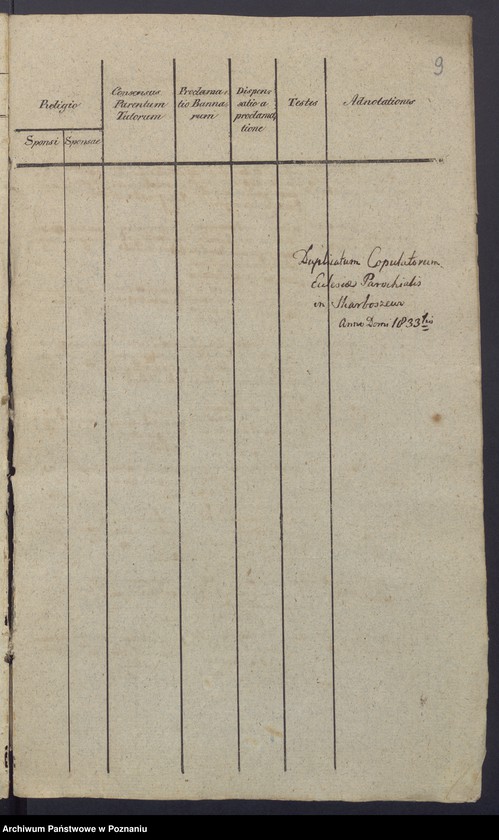 9
Religio
Sponsi Sponsae
Consensus
Parentum
Tutorum
Proclama-
tio Banno-
rum
Dispen-
satio a
proclama-
tione
Testes
Adnotationes
Duplicatum Copulatorum
Ecclesiae Parochialis
in Skarboszew
Anno Domi 1833tis
Archiwum Państwowe w Poznaniu